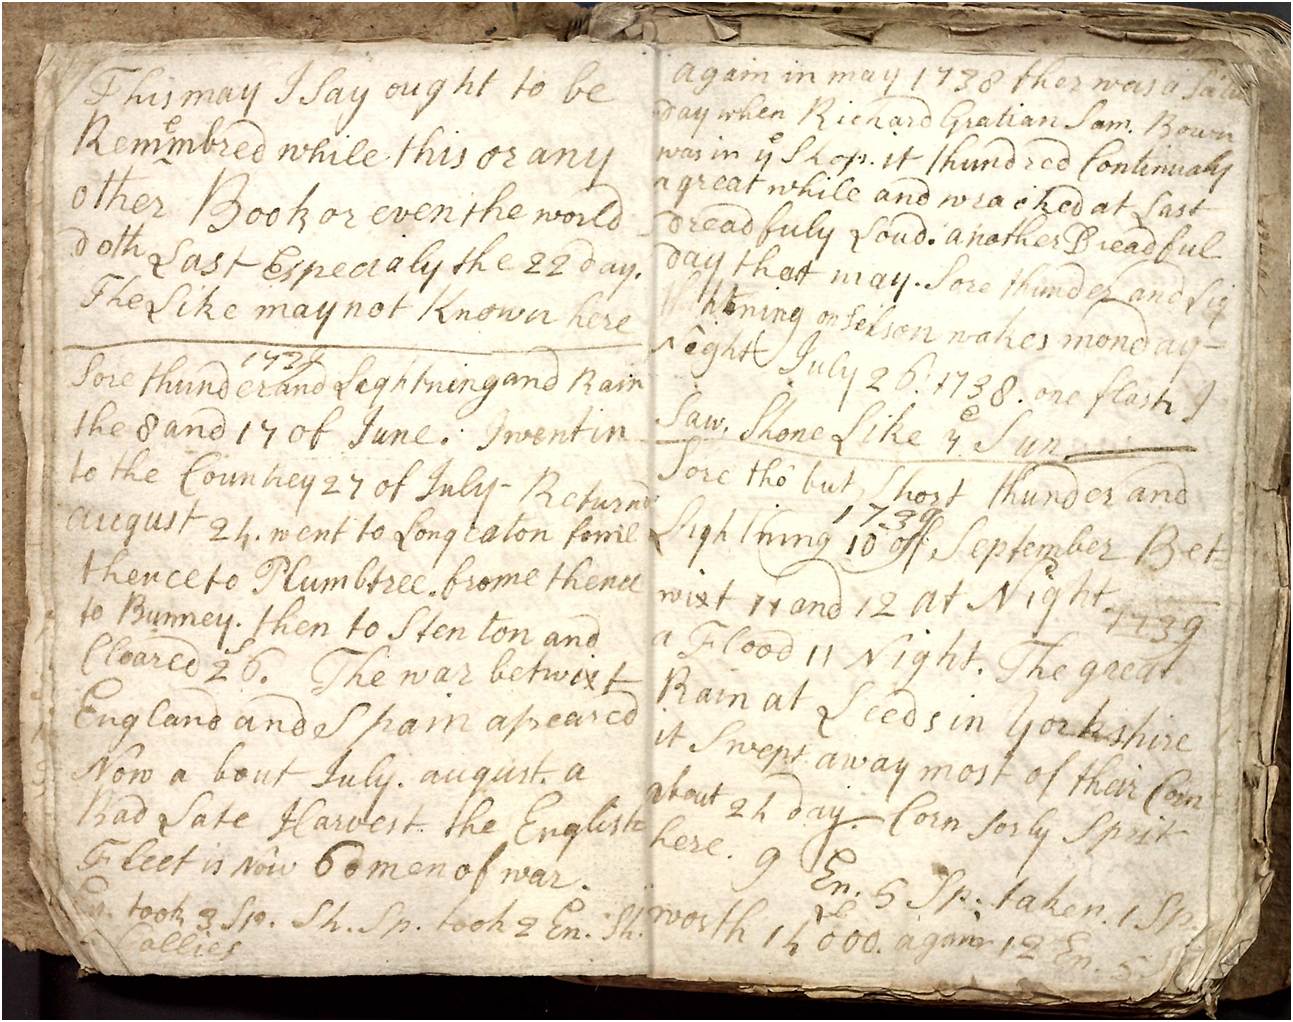 This may I Say ought to be
Remembred while this or any
other Book or even the world
doth Last Especialy the 22 day.
The Like may not Known here
1739
Sore thunder and Leghtning and Rain
the 8 and 17 of June. I went in
to the Countrey 27 of July - Returnd
august 24. went to Long eaton frome
thence to Plumbtree. frome thence
to Bunney. then to Stenton and
Cloared 26. The war betwixt
England and Spain apeared
Now a bout July. august. a
Bad Late Harvest. the English
Fleet is Now 60 men of war.
En. took 3 Sp. Sh. Sp. took 2 En. Sh.
Collies
again in may 1738 ther was a
day when Richard Gratian Sam. Bown
was in ye Shop. it thundred Continualy
a great while and wracked at Last
dreadfuly Loud. another Dreadful
day that may. Sore thunder and Lig
htning on Selson wakes monday
night July 26: 1738. one flash I
Saw, Shone Like ye Sun
Sore tho but Short thunder and
1739
Lightning 10 of September Bet
wixt 11 and 12 at Night.
1739
a Flood 11 Night. The great
Rain at Leeds in Yorkshire
it Swept away most of their Corn
about 24 day. Corn sorly Sprit
here. 9 En. 5 Sp. taken. 1 Sp.
worth 14000. again 12 En. 5